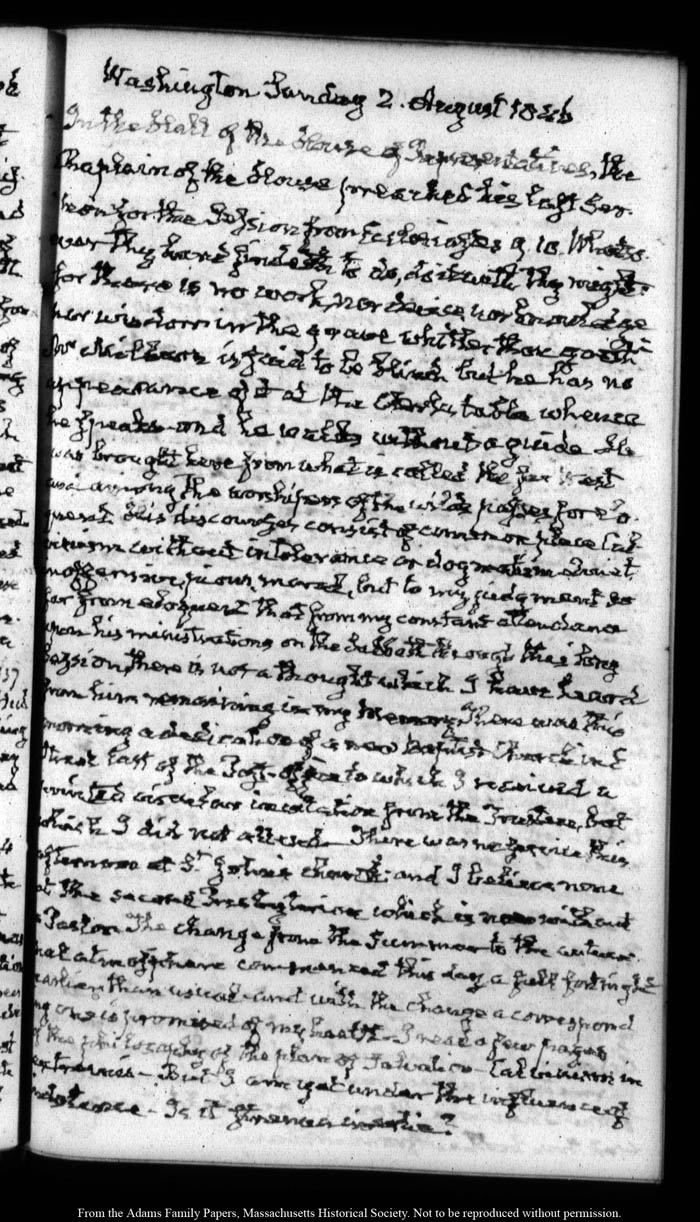 Washington Sunday 2. August 1846
In the Hall of the House of Representatives, the
Chaplain of the House preached his last Ser-
mon for the Session from Ecclesiastes 9. 10. Whatso-
ever thy hand findeth to do, do it with thy might:
for there is no work, nor device, nor knowledge
nor wisdom in the grave whither thou goest.
Mr Milburn is said to be blind but he has no
appearance of it at the Clerks table whence
he speaks and he walks without a guide He
was brought here from what is called the far West
and among the worshipers of the wild passes for elo-
quent His discourses consist of common place Cal-
vinism without intolerance or dogmatism Quiet
inoffensive, pious, moral, but to my judgment so
far from eloquent that from my constant attendance
upon his ministrations on the Sabbath through this long
Session, there is not a thought which I have heard
from him remaining in my memory There was this
morning a dedication of a new Baptist Church in E
Street East of the Post-Office to which I received a
printed circular invitation from the Trustees, but
which I did not attend. There was no service this
afternoon at St John's church: and I believe none
at the second Presbyterian which is now without
a Pastor. The change from the Summer to the autum-
nal atmosphere commenced this day a full fortnight
earlier than usual and with the change a correspond
ing one is promised of my health. I read a few pages
of the philosophy of the plan of Salvation - Calvinism in
extremis - But I am yet under the influence of
indolence - Is it